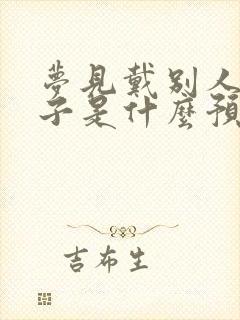 夢見戴別人
子是什麼預
吉布生